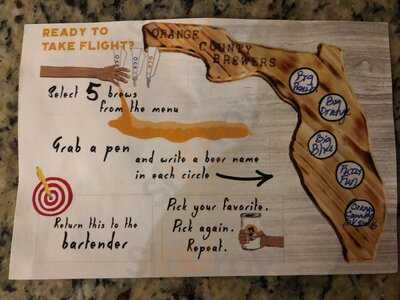 READY TO
TAKE FLIGHT?
ORANGE
COUNTY
BREWERS
OCB
OCB
Select 5 brews
from the menu
Grab a pen
and write a beer name
in each circle
Big
Big
Orange
Big
Blue
Fuzzy
Fun
Orange
County
Pick your favorite.
Pick again.
Repeat.
Return this to the
bartender